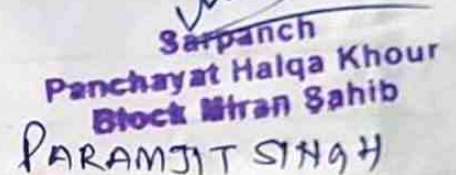 Sarpanch
Panchayat Halqa Khour
Block Miran Sahib
PARAMJIT SINGH